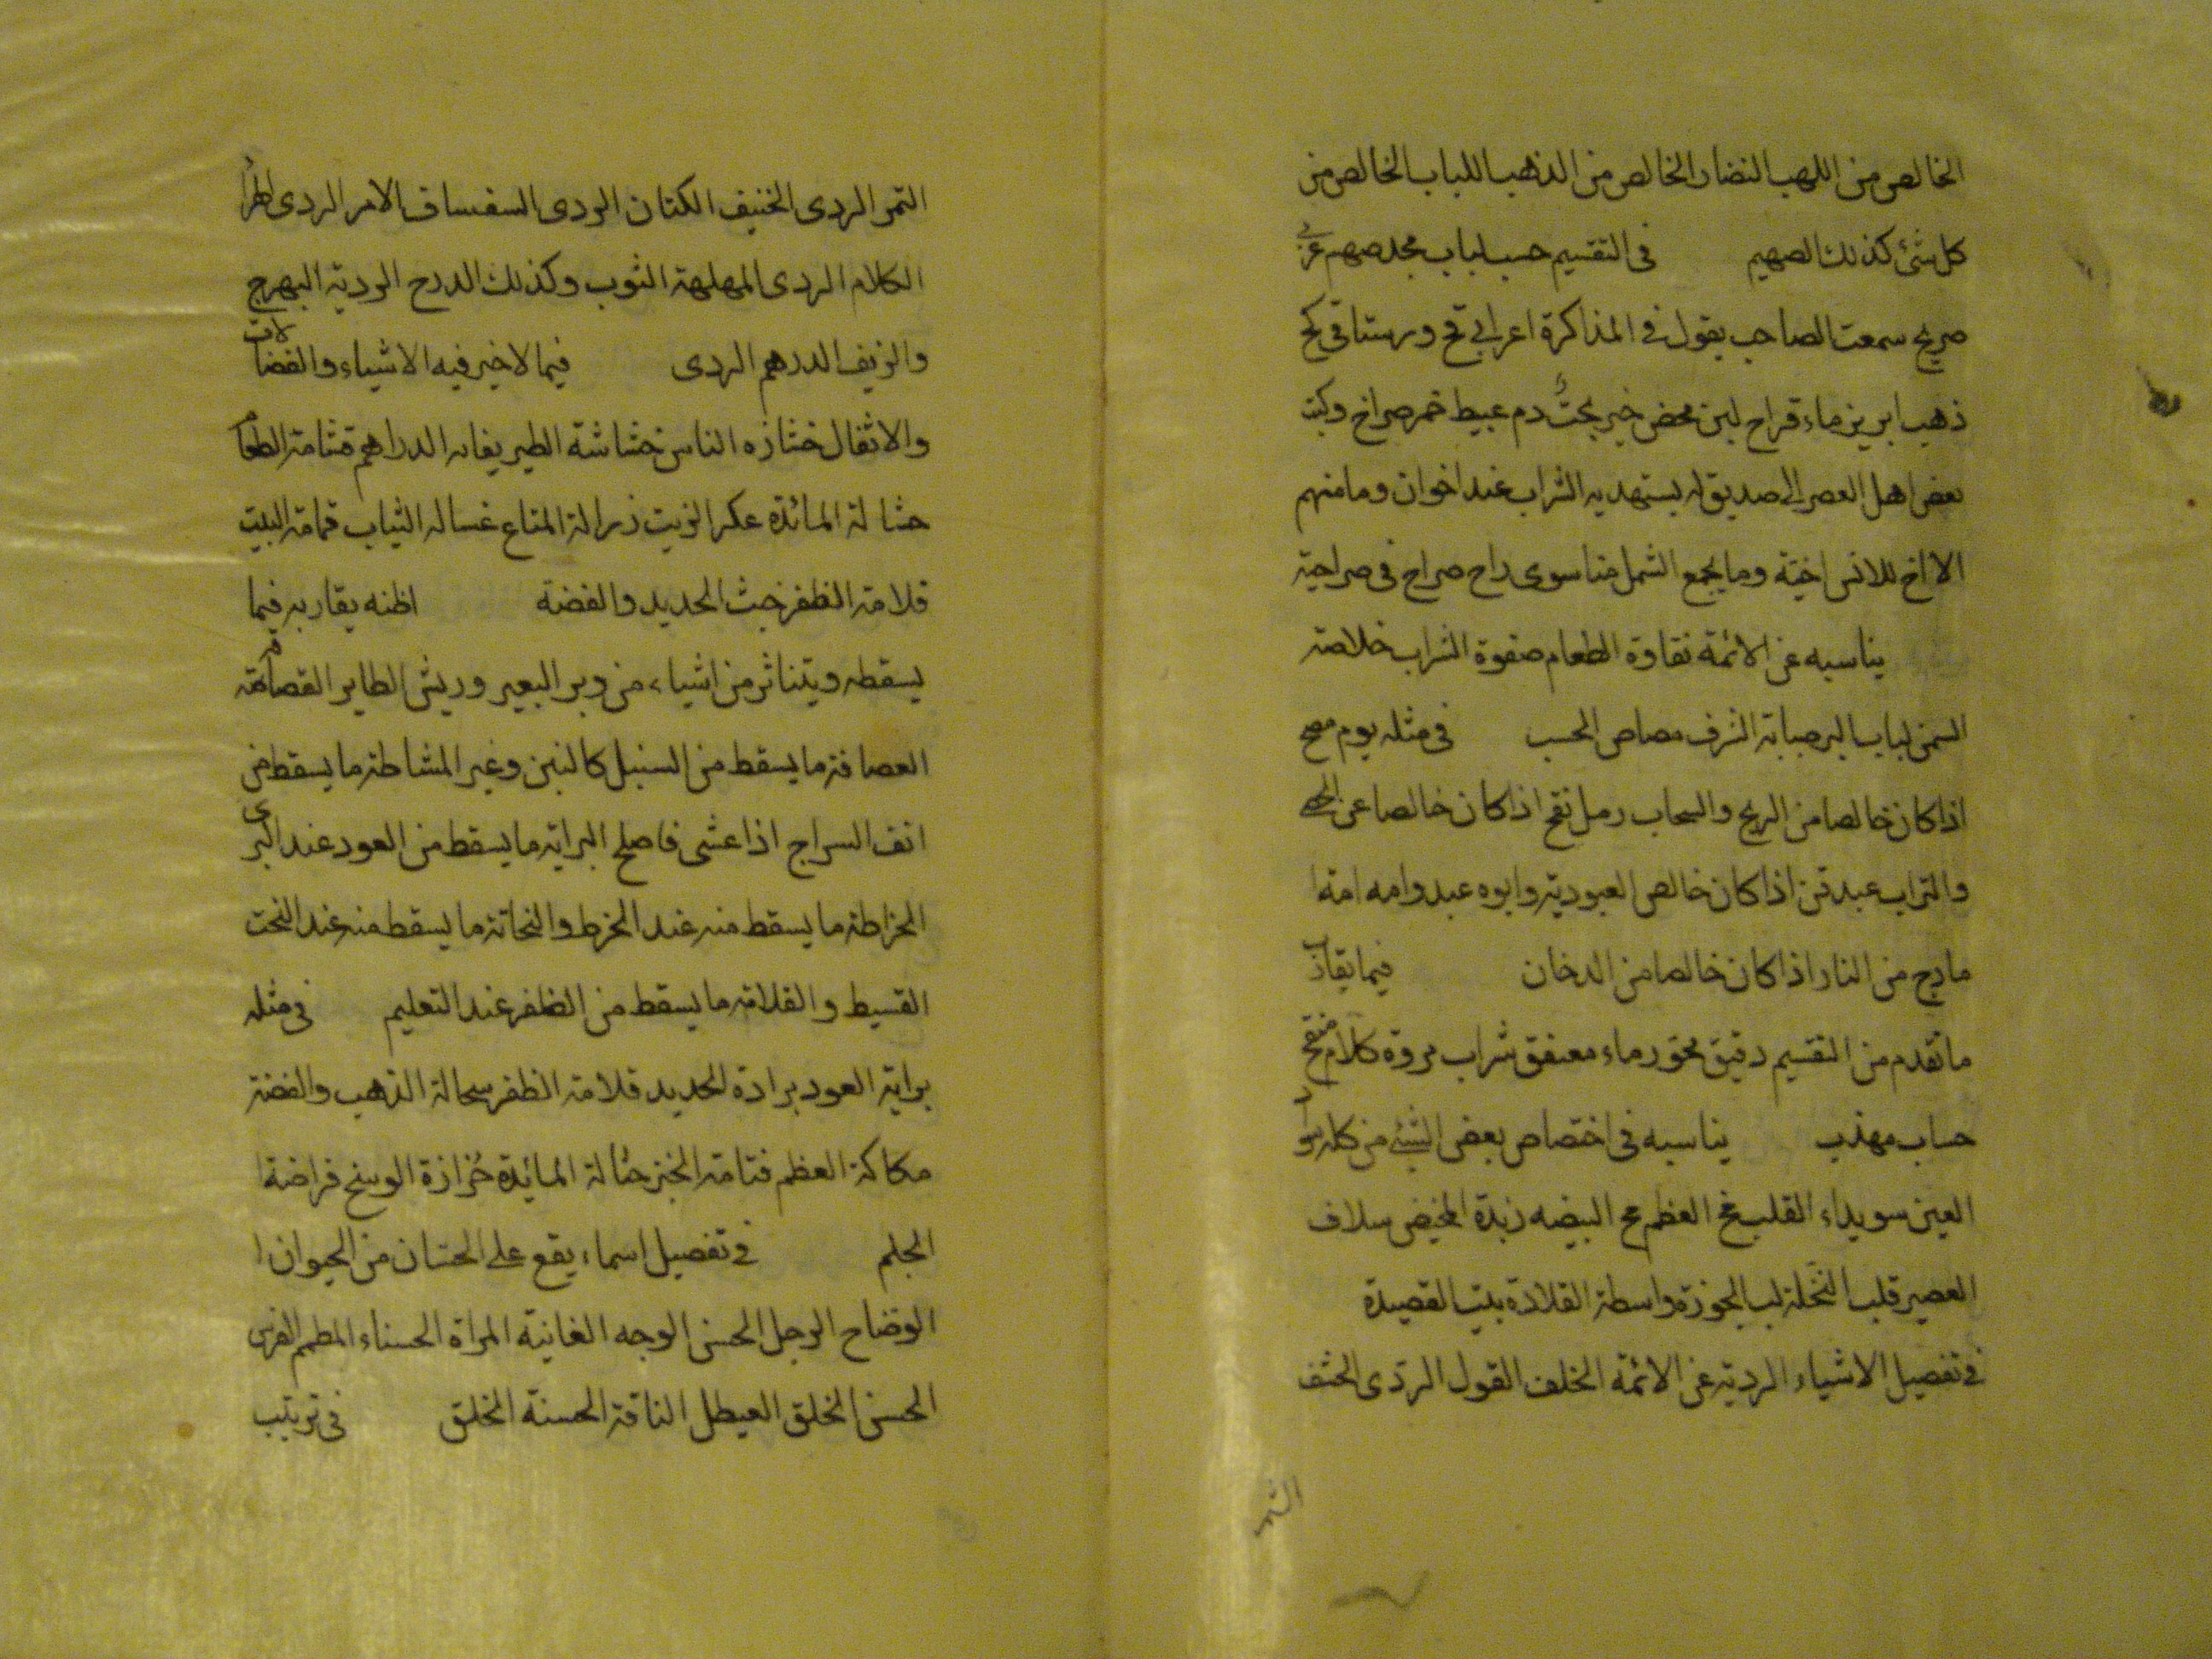 الخالص من اللهب النضار الخالص من الذهب اللباب الخالص من
كل شئ كذلك الصهيم في التقسيم حسب لباب مجد صهيم عربي
صريح سمعت الصاحب يقول في المذاكرة اعرابي قح ورستاقي كح
ذهب ابريز ماء قراح لبن محض خبر بحت دم عبيط خمر صراح وكتب
بعض اهل العصر الى صديق له يستهديه الشراب عند اخوان وما منهم
الا اخ للانس اخية وما يجمع الشمل منا سوى راح صراح في صراحية
يناسبه عن الائمة نقاوة الطعام صفوة الشراب خلاصة
السمن لباب البر صبابة الشرف مصاص الحسب في مثله يوم مصح
اذا كان خالصا من الريح والسحاب رمل نقح اذا كان خالصا عن الحصى
والتراب عبد قن اذا كان خالص العبودية وابوه عبد وامه امة
مارج من النار اذا كان خالصا من الدخان فيما يقارب
ما تقدم من التقسيم دقيق محور ماء مصفق شراب مروق كلام منقح
حساب مهذب يناسبه في اختصاص بعض الشئ من كله سواد
العين سويداء القلب مخ العظم مح البيضه زبدة المخيض سلاف
العصير قلب النخلة لب الجوزة واسطة القلادة بيت القصيدة
في تفصيل الاشياء الردية عن الائمة الخلف القول الردى الحشف
التمر
التمر الردى الخنيف الكتان الردى السفساف الامر الردى الهراء
الكلام الردى المهلهة الثوب وكذلك الدرح الردية البهرج
والزيف الدرهم الردى فيما لا خير فيه الاشياء والفضالات
والاثفال خشاره الناس خشاشة الطير يفايه الدراهم قشامة الطعام
حثالة المائدة عكر الزيت رذالة المتاع غساله الثياب قمامة البيت
قلامة الظفر خبث الحديد والفضة اظنه يقاربه فيما
يسقطه ويتناثر من اشياء من وبر البعير وريش الطاير القصامة
العصافة ما يسقط من السنبل كالتبن وغير المشاطة ما يسقط من
انف السراج اذا عشى فاصلح البراية ما يسقط من العود عند البرى
الخراطة ما يسقط منه عند الخرط والنحاتة ما يسقط منه عند النحت
القسيط والقلامة ما يسقط من الظفر عند التعليم في مثله
براية العود برادة الحديد قلامة الظفر سحالة الذهب والفضة
مكاكة العظم فتامة الخبز حثالة المائدة حزازة الوسخ قراضة
الجلم في تفصيل اسماء يقع على الحسان من الحيوان
الوضاح الرجل الحسن الوجه الغانية المراة الحسناء المطهم الفرس
الحسن الخلق العيطل الناقة الحسنة الخلق في ترتيب